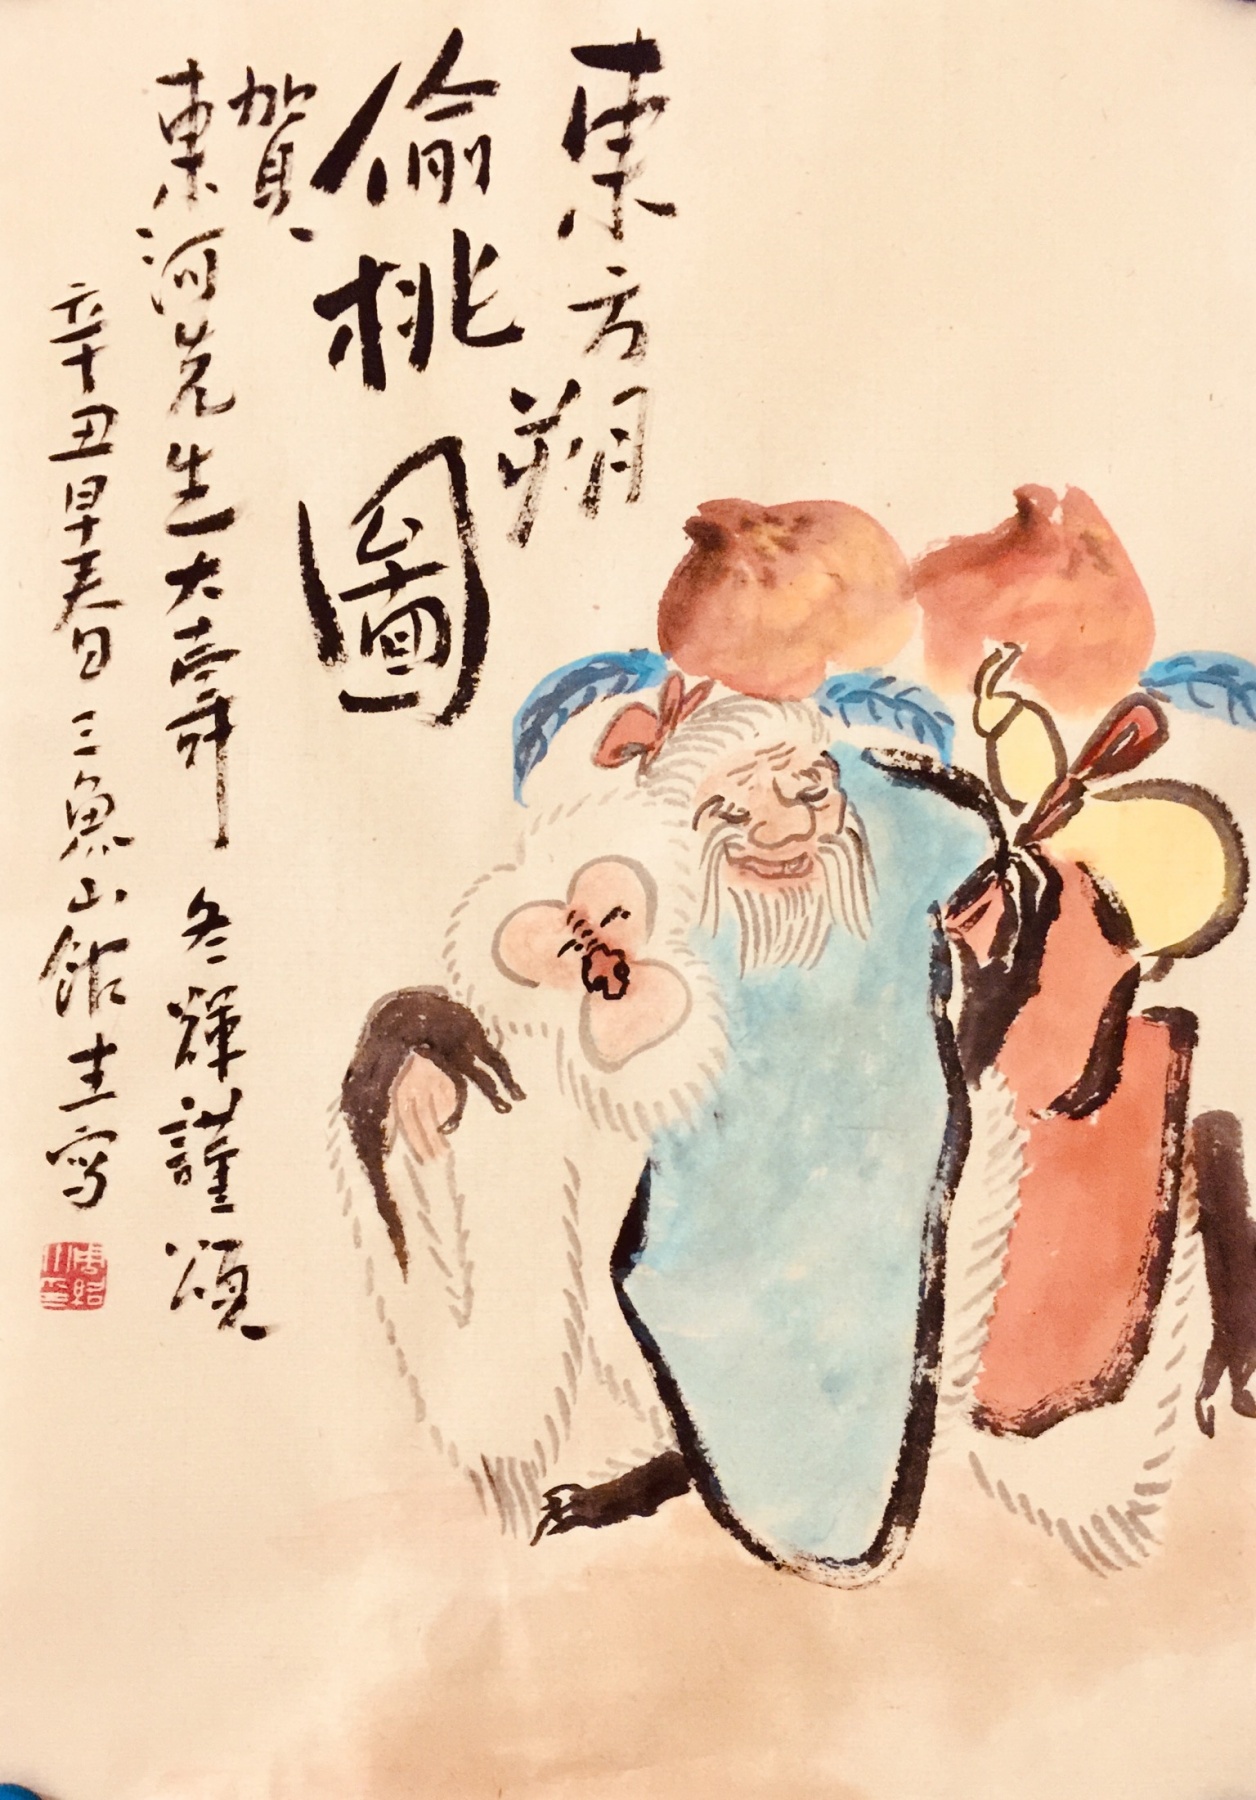 東方朔
偷桃圖
賀
東河先生大壽 冬輝謹頌
辛丑早春日三魚山館主寫